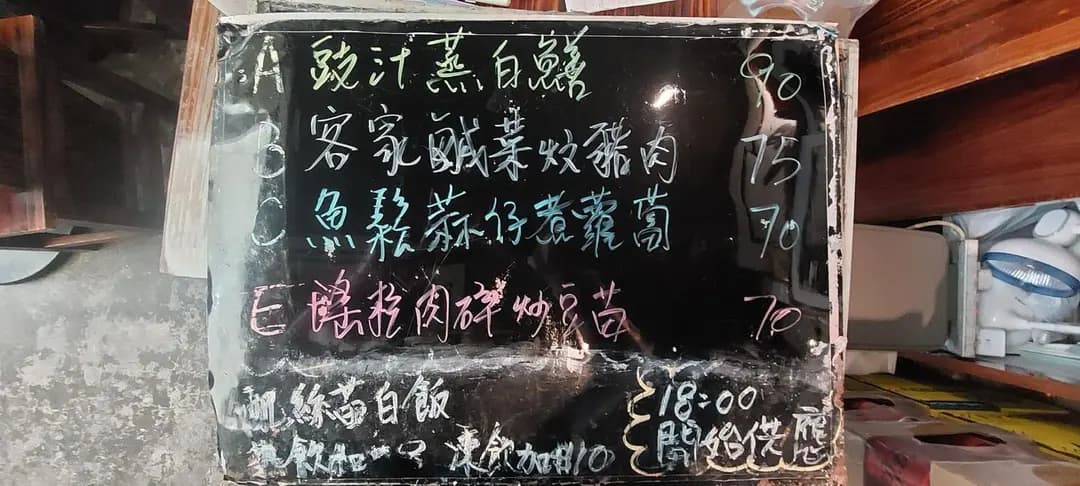 A 豉汁蒸白鱔 90
B 客家鹹菜炆豬肉 75
C 魚鬆蒜仔煮蘿蔔 70
E 瑤柱肉碎炒豆苗 70
絲苗白飯
飲加 凍飲加#10
18:00
開始供應